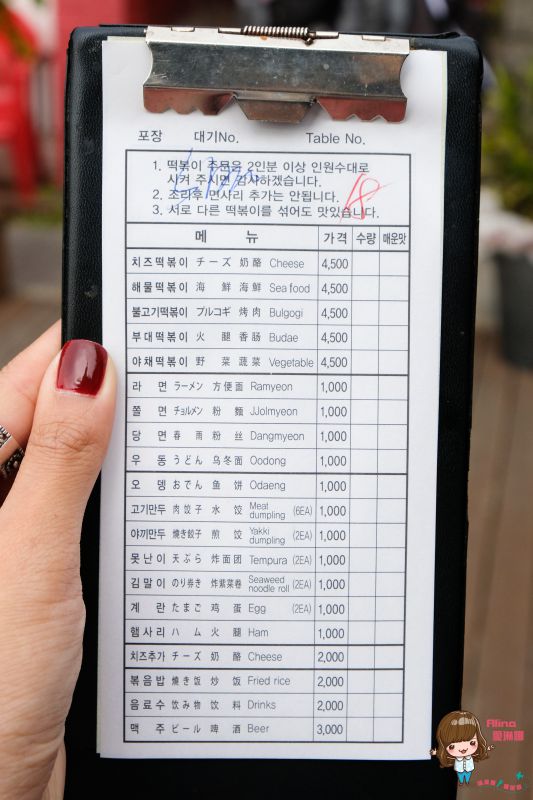 포장 대기No. Table No.
1. 떡볶이 주문은 2인분 이상 인원수대로
시켜 주시면 감사하겠습니다.
2. 조리후 면사리 추가는 안됩니다.
3. 서로 다른 떡볶이를 섞어도 맛있습니다.
메 뉴 가격 수량 매운맛
치즈떡볶이 チーズ 奶酪 Cheese 4,500
해물떡볶이 海鮮 海鲜 Sea food 4,500
불고기떡볶이 プルコギ 烤肉 Bulgogi 4,500
부대떡볶이 火腿香肠 Budae 4,500
야채떡볶이 野菜 蔬菜 Vegetable 4,500
라면 ラーメン 方便面 Ramyeon 1,000
쫄면 チョルメン 粉麵 JJolmyeon 1,000
당면 春雨 粉丝 Dangmyeon 1,000
우동 うどん 乌冬面 Oodong 1,000
오뎅 おでん 鱼饼 Odaeng 1,000
고기만두 肉饺子 水饺 Meat dumpling (6EA) 1,000
야끼만두 焼き餃子 煎饺 Yakki dumpling (2EA) 1,000
못난이 天ぷら 炸面团 Tempura (2EA) 1,000
김말이 のり券き 炸紫菜卷 Seaweed noodle roll (2EA) 1,000
계란 たまご 鸡蛋 Egg (2EA) 1,000
햄사리 ハム 火腿 Ham 1,000
치즈추가 チーズ 奶酪 Cheese 2,000
볶음밥 焼き饭 炒饭 Fried rice 2,000
음료수 飲み物 饮料 Drinks 2,000
맥주 ビール 啤酒 Beer 3,000
Alina
愛琳娜